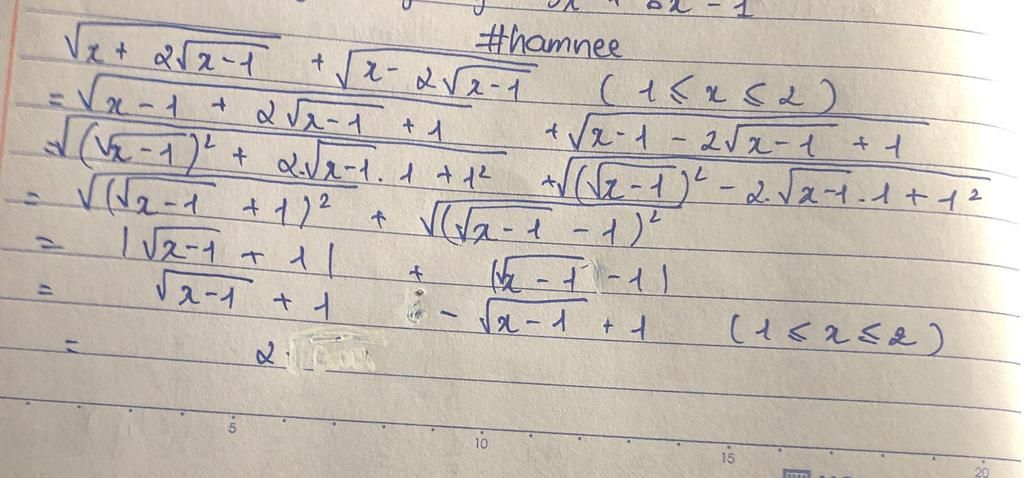 x - 1
#hamnee
√(x + 2√(x-1)) + √(x - 2√(x-1)) (1 ≤ x ≤ 2)
= √(x - 1 + 2√(x-1) + 1) + √(x-1 - 2√(x-1) + 1)
= √((√(x-1))² + 2.√(x-1).1 + 1²) + √((√(x-1))² - 2.√(x-1).1 + 1²)
= √((√(x-1) + 1)²) + √((√(x-1) - 1)²)
= |√(x-1) + 1| + |√(x-1) - 1|
= √(x-1) + 1 - √(x-1) + 1 (1 ≤ x ≤ 2)
= 2
5 10 15 20